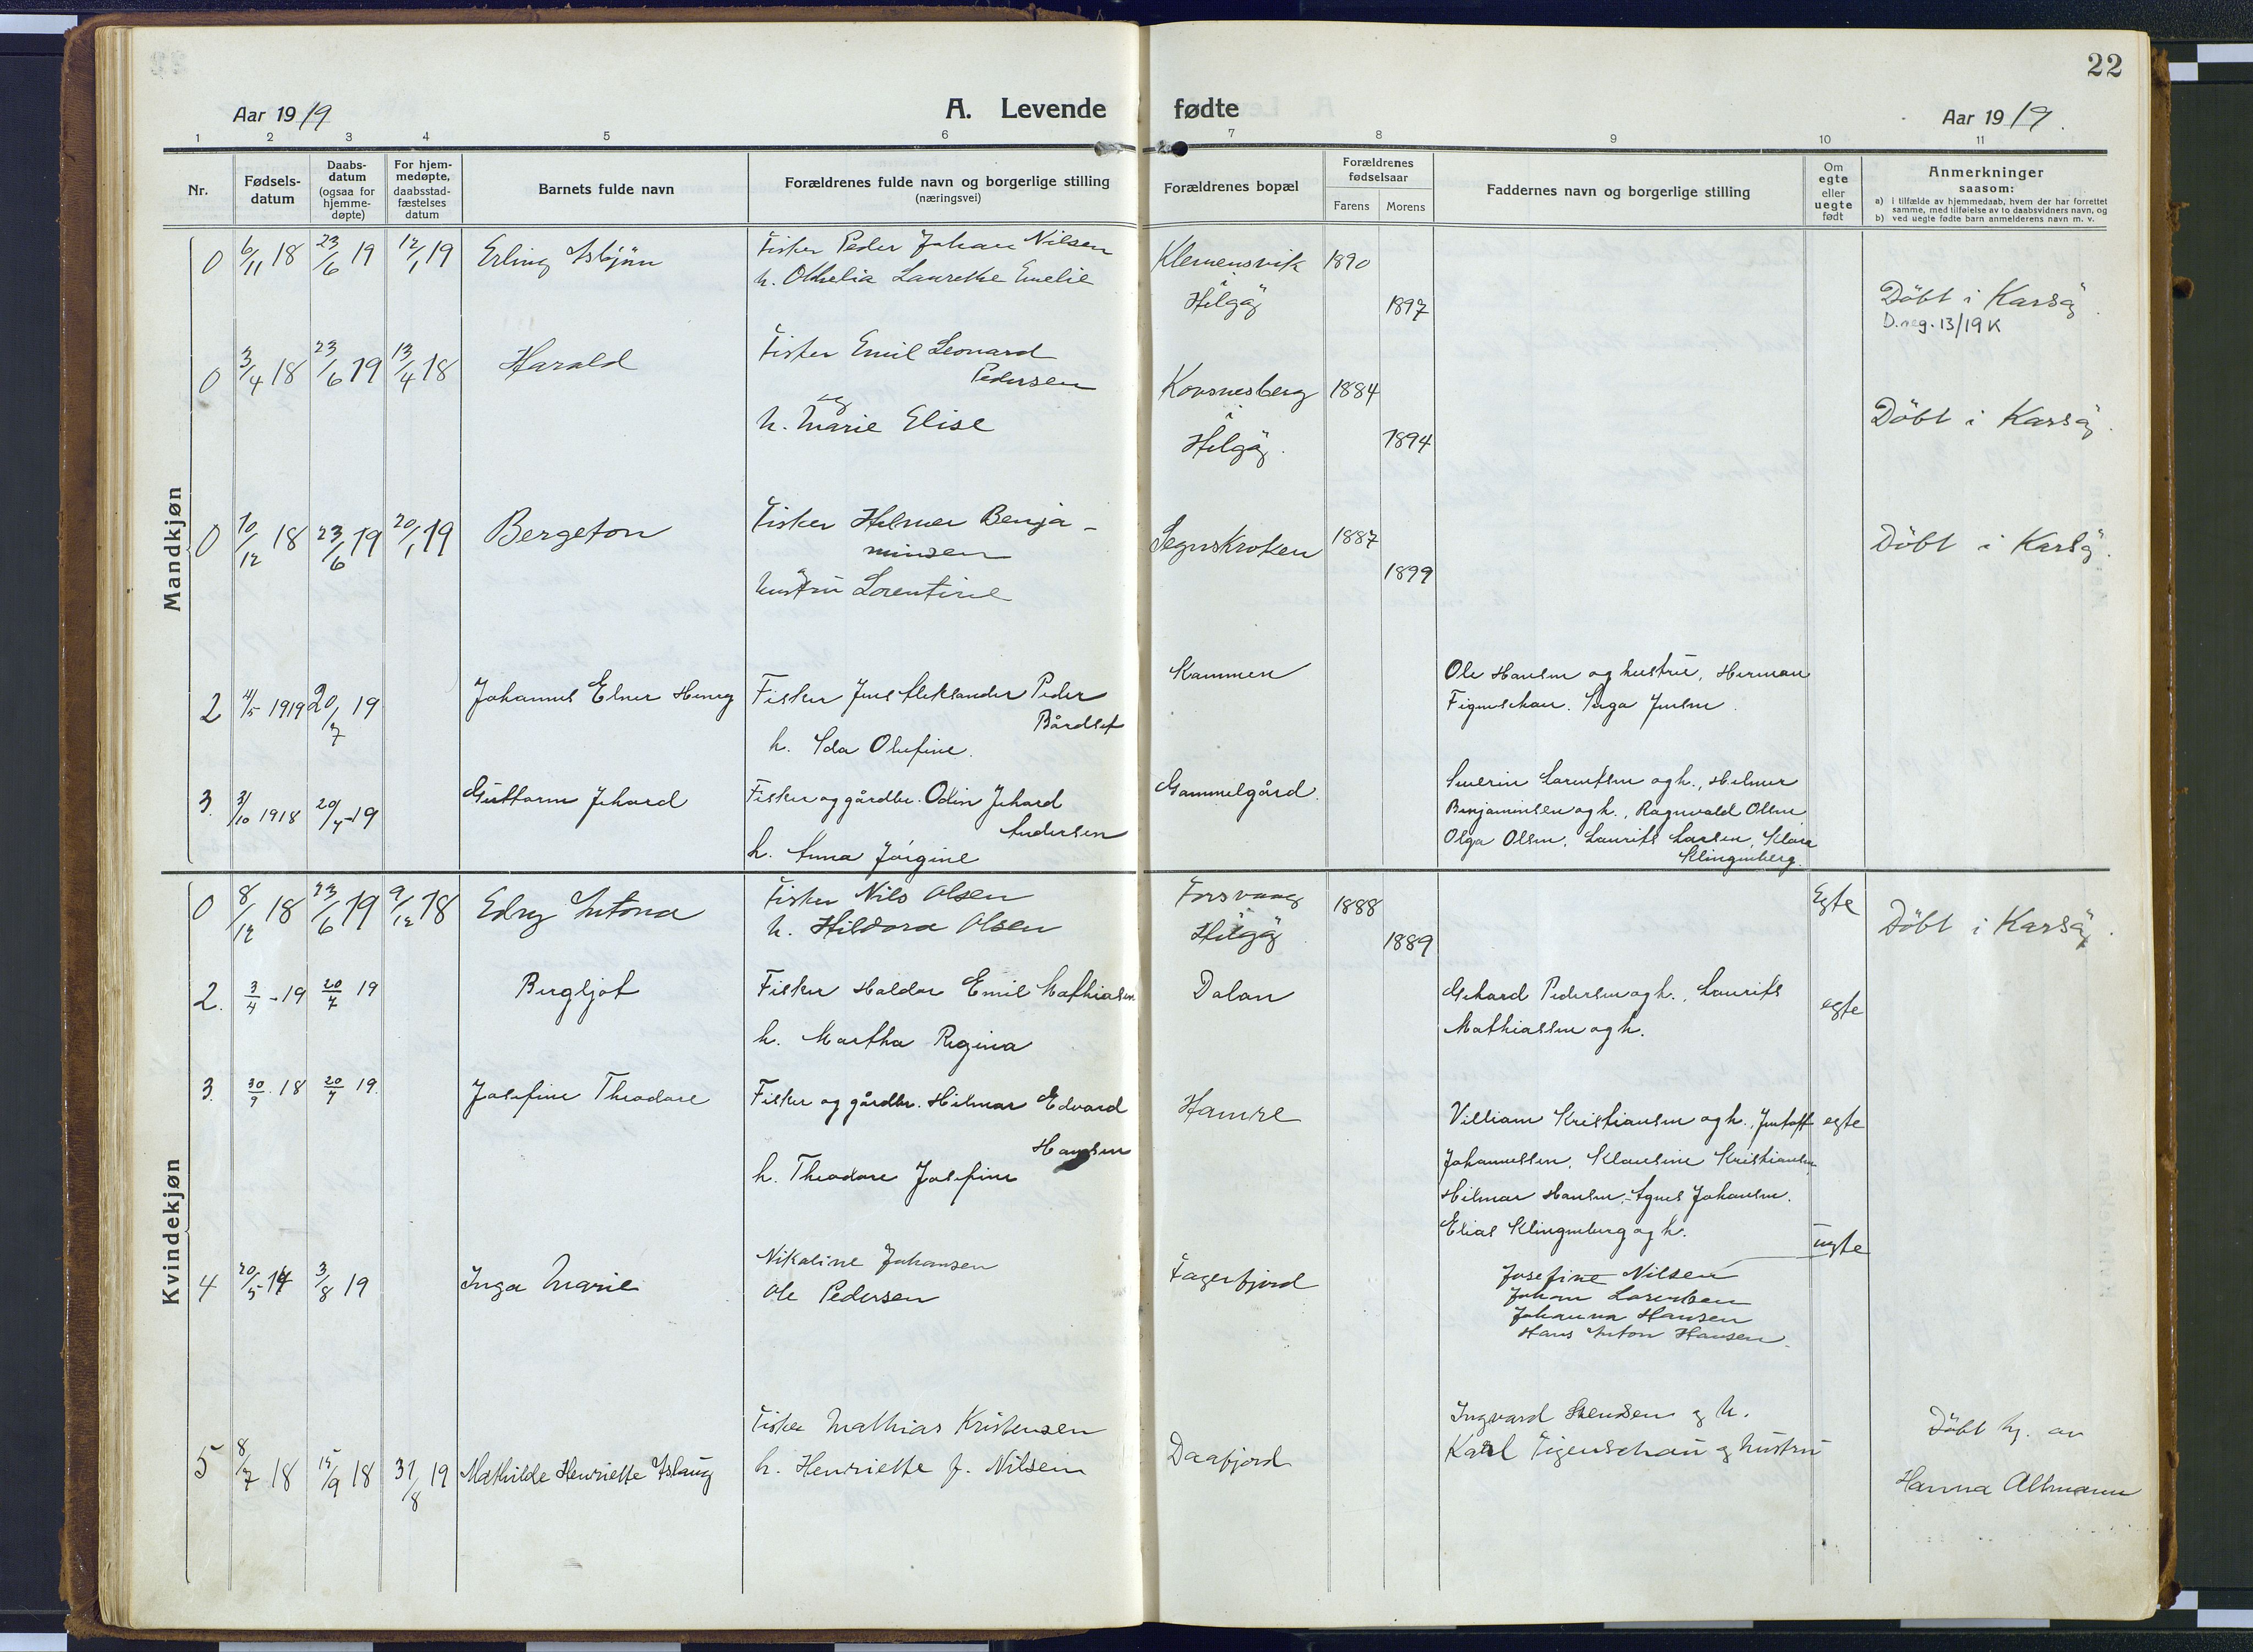 22
Aar 1919 A. Levende fødte Aar 1919.
1 2 3 4 5 6 7 8 9 10 11
Nr.
Fødsels-
datum
Daabs-
datum
(ogsaa for
hjemme-
døpte)
For hjem-
medøpte,
daabsstad-
fæstelses
datum
Barnets fulde navn
Forældrenes fulde navn og borgerlige stilling
(næringsvei)
Forældrenes bopæl
Forældrenes
fødselsaar
Farens Morens
Faddernes navn og borgerlige stilling
Om
egte
eller
uegte
født
Anmerkninger
saasom:
a) i tilfælde av hjemmedaab, hvem der har forrettet
samme, med tilføielse av to daabsvidners navn, og
b) ved uegte fødte barn anmelderens navn m. v.
Mandkjøn
0 6/11 18 23/6 19 12/1 19 Erling Asbjörn
Fisker Peder Johan Nilsen
h. Othelia Laurethe Emelie
Klemensvik 1890
Helgöy 1897
Döbt i Karlsöy.
D.reg. 13/19 K
0 3/4 18 23/6 19 13/4 18 Harald
Fisker Emil Leonard
Pedersen
og
h. Marie Elise
Korsnesberg 1884
i
Helgöy. 1894
Döbt i Karlsöy.
0 10/12 18 23/6 19 20/1 19 Bergeton
Fisker Helmer Benja-
minsen
hustru Lorentine
Segnskroken 1887
1899
Döbt i Karlsöy.
2 4/5 1919 20/7 19 Johannes Elner Henry
Fisker Jens Aleksander Peder
Bårdset
h. Ida Olufine.
Kammen
Ole Hansen og hustru, Herman
Figenschau. Inga Jensen.
3. 3/10 1918 20/7-19 Guttorm Jehard
Fisker og gårdbr. Odin Jehard
Andersen
h. Anna Jörgine
Gammelgård.
Severin Larentsen og h., Helmer
Benjaminsen og h., Ragnvald Olsen
Olga Olsen, Laurits Larsen, Klara
Klingenberg.
Kvindekjøn
0 8/12 18 23/6 19 9/12 18 Edny Antona
Fisker Nils Olsen
h. Hildora Olsen
Forsvaag 1888
Helgöy 1889
Egte
Döbt i Karlsöy.
2. 3/4-19 20/7 19 Bergljot
Fisker Haldor Emil Mathiasen
h. Martha Regina
Dalan
Gehard Pedersen og h., Laurits
Mathiassen og h.
egte
3. 30/9 18 20/7 19. Josefine Theodore
Fisker og gårdbr. Hilmar Edvard
Hansen
h. Theodore Josefine
Hamre
Villiam Kristiansen og h., Jentoft egte
Johannessen, Klausine Kristiansen,
Hilmar Hansen, Agnes Johansen.
Elias Klingenberg og h.
4 20/5 14 3/8 19 Inga Marie
Nikoline Johansen
Ole Pedersen
Fagerfjord
uegte
Josefine Nilsen
Johan Lorentsen
Johanna Hansen
Hans Anton Hansen.
5 8/7 18 15/9 18 31/8 19 Mathilde Henriette Aslaug
Fisker Mathias Kristensen
h. Henriette f. Nilsen
Daafjord
Ingvard Svendsen og h.
Karl Figenschau og hustru
Döbt hj. av
Hanna Altmann